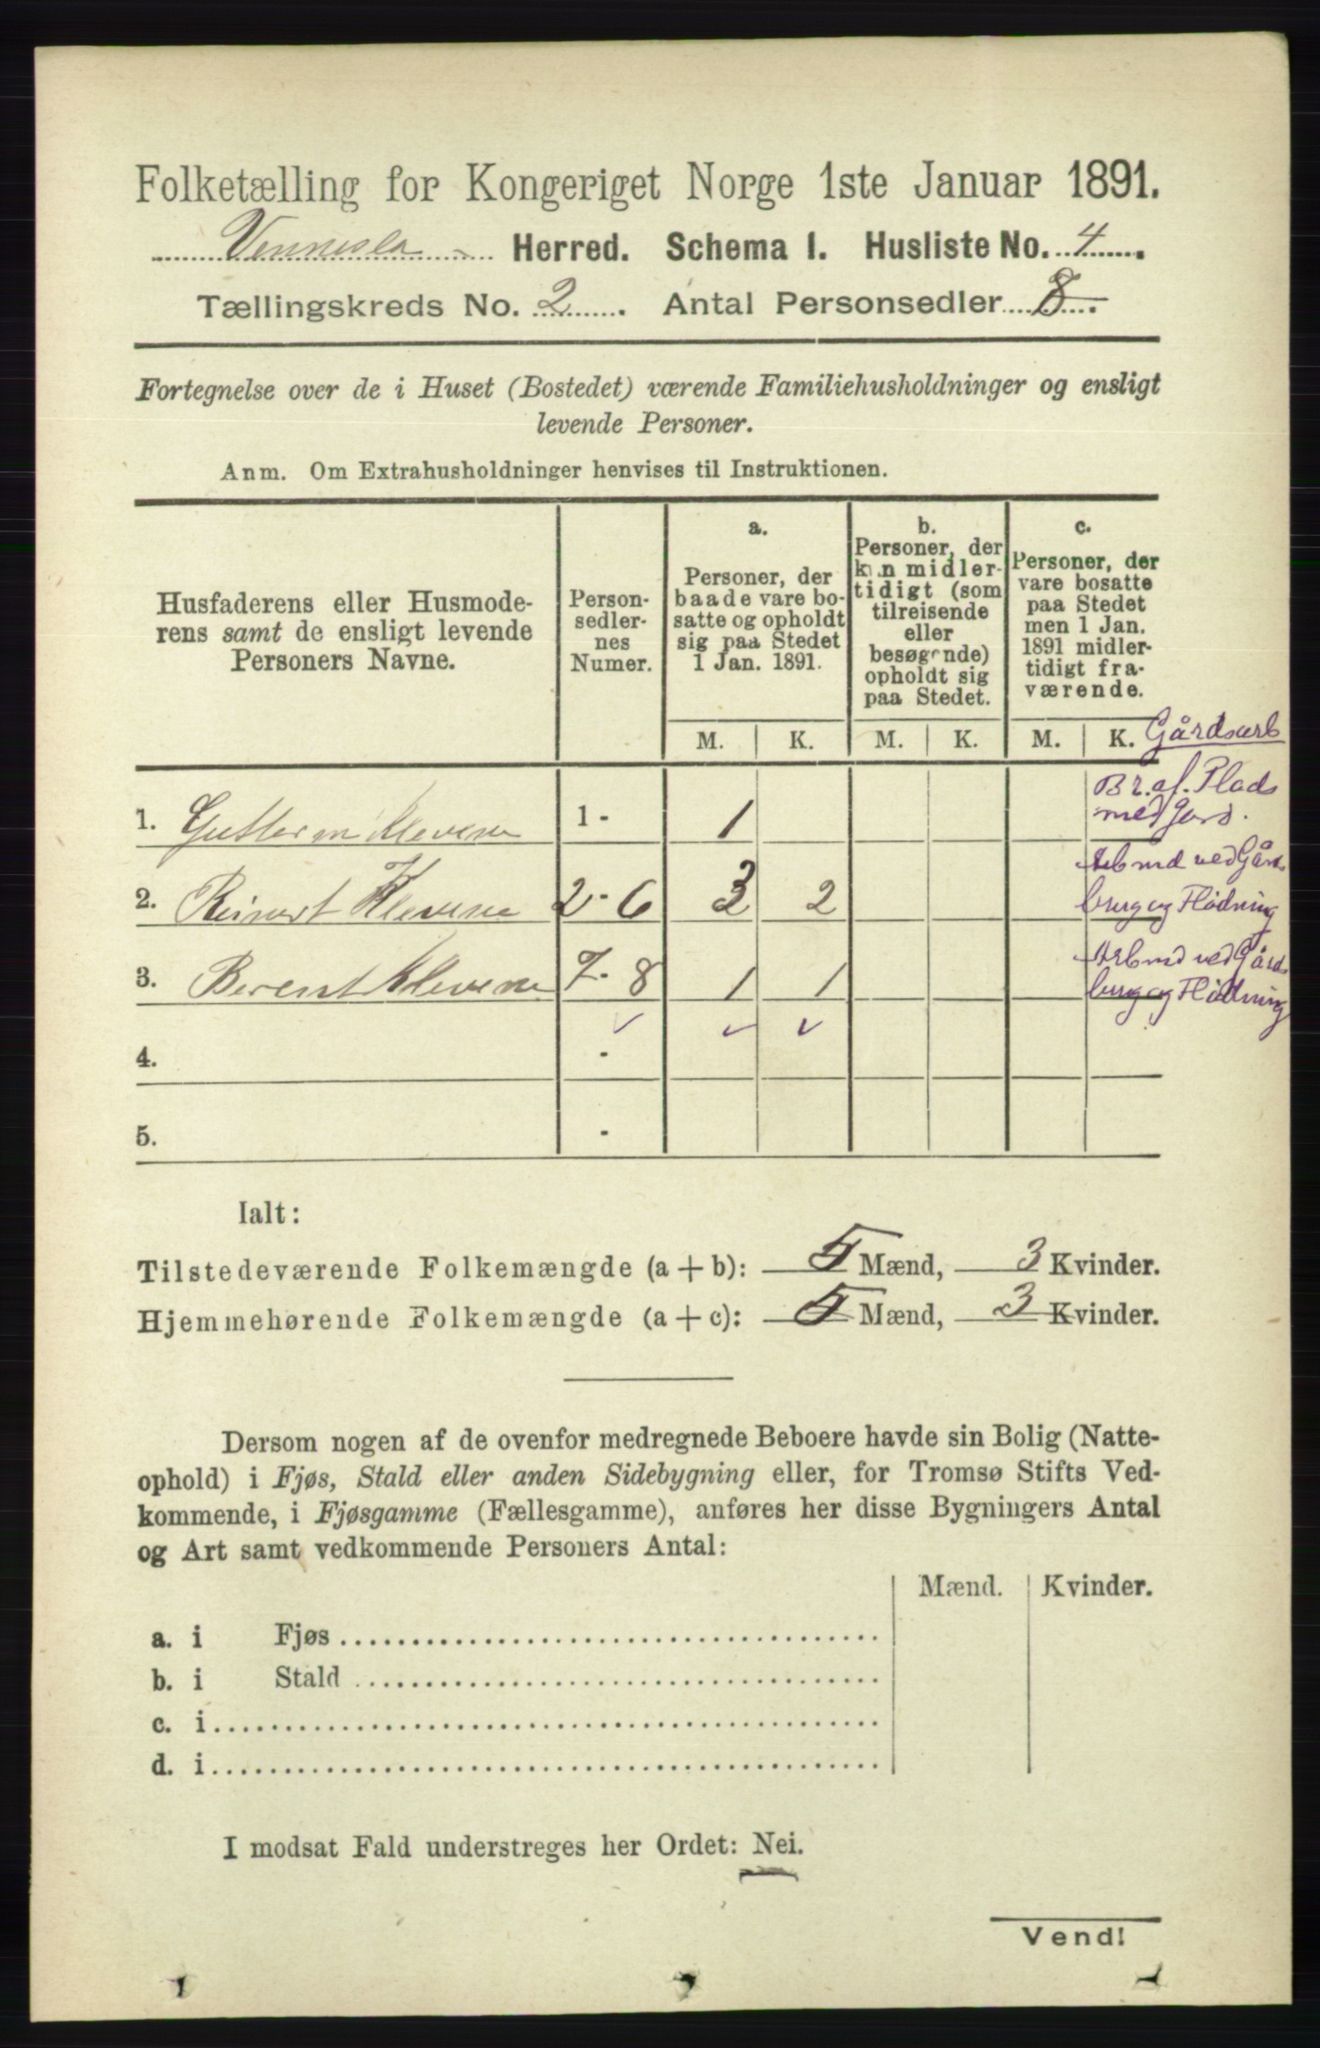 Folketælling for Kongeriget Norge 1ste Januar 1891.
Vennesla Herred. Schema I. Husliste No. 4
Tællingskreds No. 2. Antal Personsedler 8.
Fortegnelse over de i Huset (Bostedet) værende Familiehusholdninger og ensligt
levende Personer.
Anm. Om Extrahusholdninger henvises til Instruktionen.
Husfaderens eller Husmode-
rens samt de ensligt levende
Personers Navne.
Person-
sedler-
nes
Numer.
a.
Personer, der
baade vare bo-
satte og opholdt
sig paa Stedet
1 Jan. 1891.
b.
Personer, der
kun midler-
tidigt (som
tilreisende
eller
besøgende)
opholdt sig
paa Stedet.
c.
Personer, der
vare bosatte
paa Stedet
men 1 Jan.
1891 midler-
tidigt fra-
værende.
M. K. M. K. M. K. Gårdsarb
1. Guttorm Klevene 1 - 1 Br. af. Plads
med Jord.
2. Reinert Klevene 2 - 6 3 2 Arb md ved Gårds
brug og Flødning
3. Berent Klevene 7 - 8 1 1 Arb md ved Gårds
brug og Flødning
4. -
5. -
Ialt:
Tilstedeværende Folkemængde (a + b): 5 Mænd, 3 Kvinder.
Hjemmehørende Folkemængde (a + c): 5 Mænd, 3 Kvinder.
Dersom nogen af de ovenfor medregnede Beboere havde sin Bolig (Natte-
ophold) i Fjøs, Stald eller anden Sidebygning eller, for Tromsø Stifts Ved-
kommende, i Fjøsgamme (Fællesgamme), anføres her disse Bygningers Antal
og Art samt vedkommende Personers Antal:
Mænd. Kvinder.
a. i Fjøs
b. i Stald
c. i
d. i
I modsat Fald understreges her Ordet: Nei.
Vend!